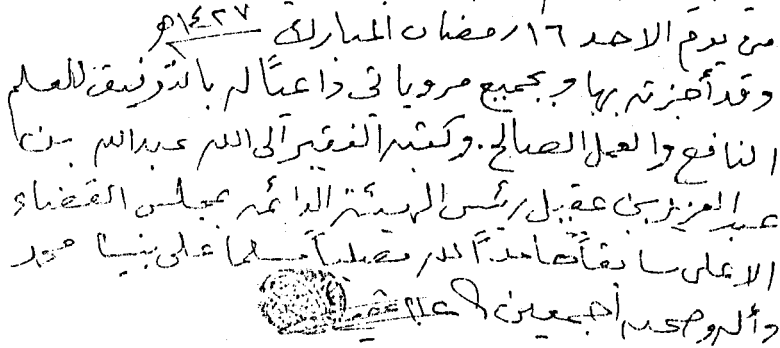 من يوم الاحد ١٦ رمضان المبارك ١٤٢٧هـ
وقد أجزته بها وبجميع مروياتي داعيًا له بالتوفيق للعلم
النافع والعمل الصالح. وكتبه الفقير الى الله عبدالله بن
عبدالعزيز بن عقيل رئيس الهيئة الدائمة بمجلس القضاء
الاعلى سابقاً حامداً لله مصلياً مسلما على نبينا محمد
وأله وصحبه أجمعين